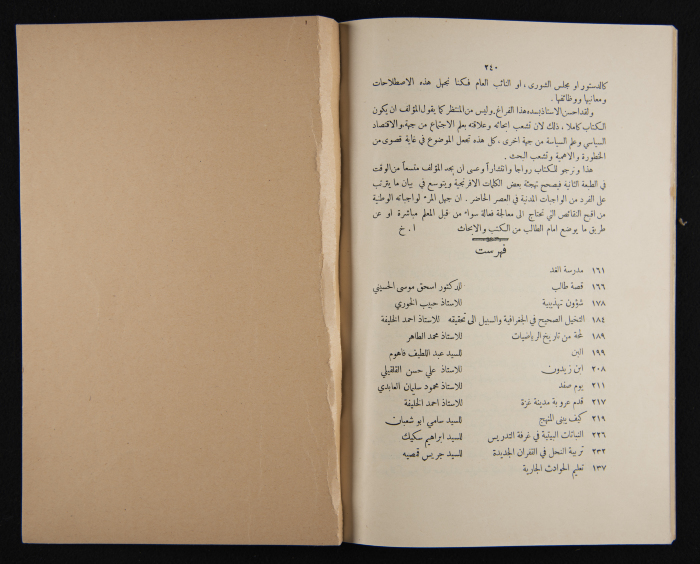 ٢٤٠
كالدستور او مجلس الشورى ، او النائب العام فكنا نجهل هذه الاصطلاحات
ومعانيها ووظائفها .
ولقد احسن الاستاذ بسده هذا الفراغ . وليس من المنتظر كما يقول المؤلف ان يكون
الكتاب كاملا ، ذلك لان تشعب ابحاثه وعلاقته بعلم الاجتماع من جهة ، والاقتصاد
السياسي وعلم السياسة من جهة اخرى ، كل هذه تجعل الموضوع في غاية قصوى من
الخطورة والاهمية وتشعب البحث .
هذا ونرجو للكتاب رواجا وانتشاراً وعسى ان يجد المؤلف متسعاً من الوقت
في الطبعة الثانية فيصحح تهجئة بعض الكلمات الافرنجية ويتوسع في بيان ما يترتب
على الفرد من الواجبات المدنية في العصر الحاضر . ان جهل المرء لواجباته الوطنية
من اقبح النقائص التي تحتاج الى معالجة فعالة سواء من قبل المعلم مباشرة او عن
طريق ما يوضع امام الطالب من الكتب والابحاث ا . خ
فهرست
١٦١ مدرسة الغد
١٦٦ قصة طالب للدكتور اسحق موسى الحسيني
١٧٨ شؤون تهذيبية للاستاذ حبيب الخوري
١٨٤ التخيل الصحيح في الجغرافية والسبيل الى تحقيقه للاستاذ احمد الخليفة
١٨٩ لمحة من تاريخ الرياضيات للاستاذ محمد الطاهر
١٩٩ البن للسيد عبد اللطيف فاهوم
٢٠٨ ابن زيدون للاستاذ علي حسن القلقيلي
٢١١ يوم صفد للاستاذ محمود سليمان العابدي
٢١٧ قدم عروبة مدينة غزة للاستاذ احمد الخليفة
٢١٩ كيف يبنى المنهج للسيد سامي ابو شعبان
٢٢٦ النباتات البيتية في غرفة التدريس للسيد ابراهيم سكيك
٢٣٢ تربية النحل في القفران الجديدة للسيد جريس قمصيه
١٣٧ تعليم الحوادث الجارية